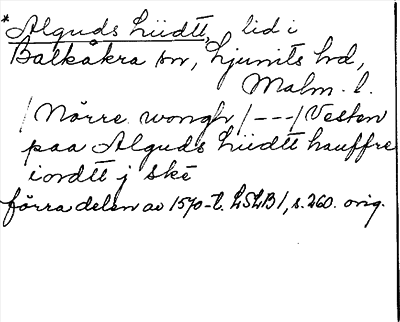 *Alguds Liidtt, lid i
Balkåkra sn, Ljunits hd,
Malm. l.
/Nörre wongh/---/Vesten
paa Alguds Liidtt hauffre
iordtt j ske
förra delen av 1570-t. LSLB1, s. 260. orig.